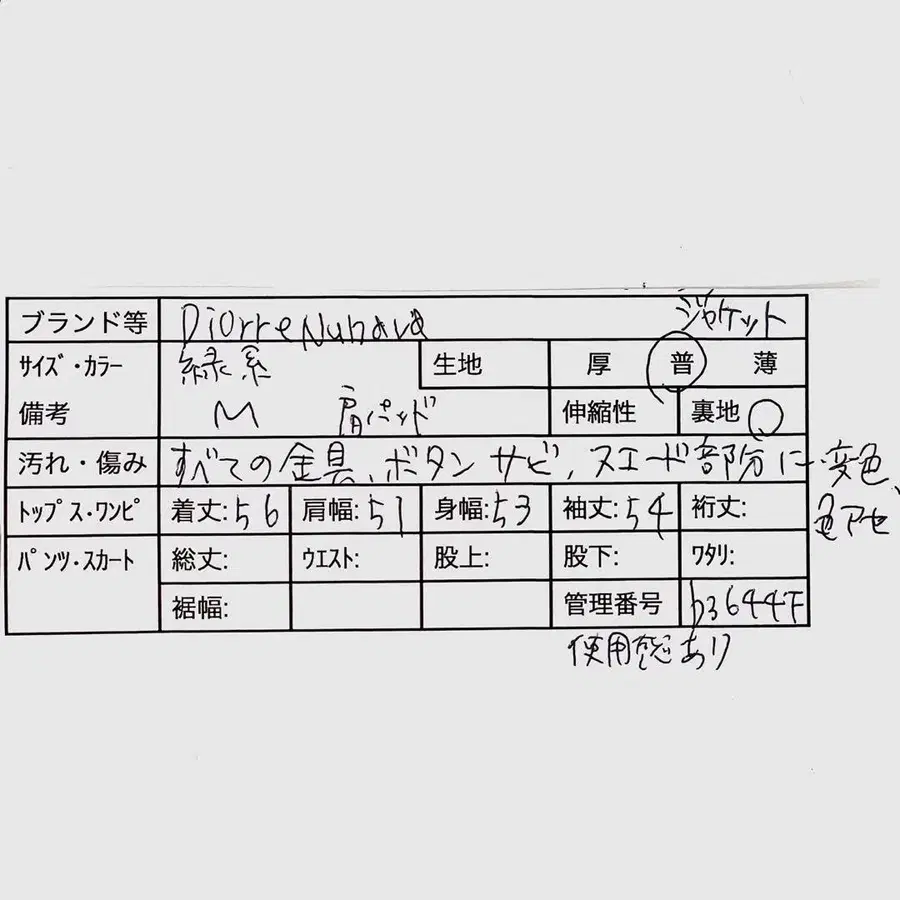 ブランド等 DiorreNuhava ジャケット
サイズ・カラー 緑系 生地 厚 普 薄
備考 M 肩パッド 伸縮性 裏地 〇
汚れ・傷み すべての金具、ボタンサビ、スエード部分に変色、
色アセ
トップス・ワンピ 着丈:56 肩幅:51 身幅:53 袖丈:54 裄丈:
パンツ・スカート 総丈: ウエスト: 股上: 股下: ワタリ:
裾幅: 管理番号 b3644F
使用感あり